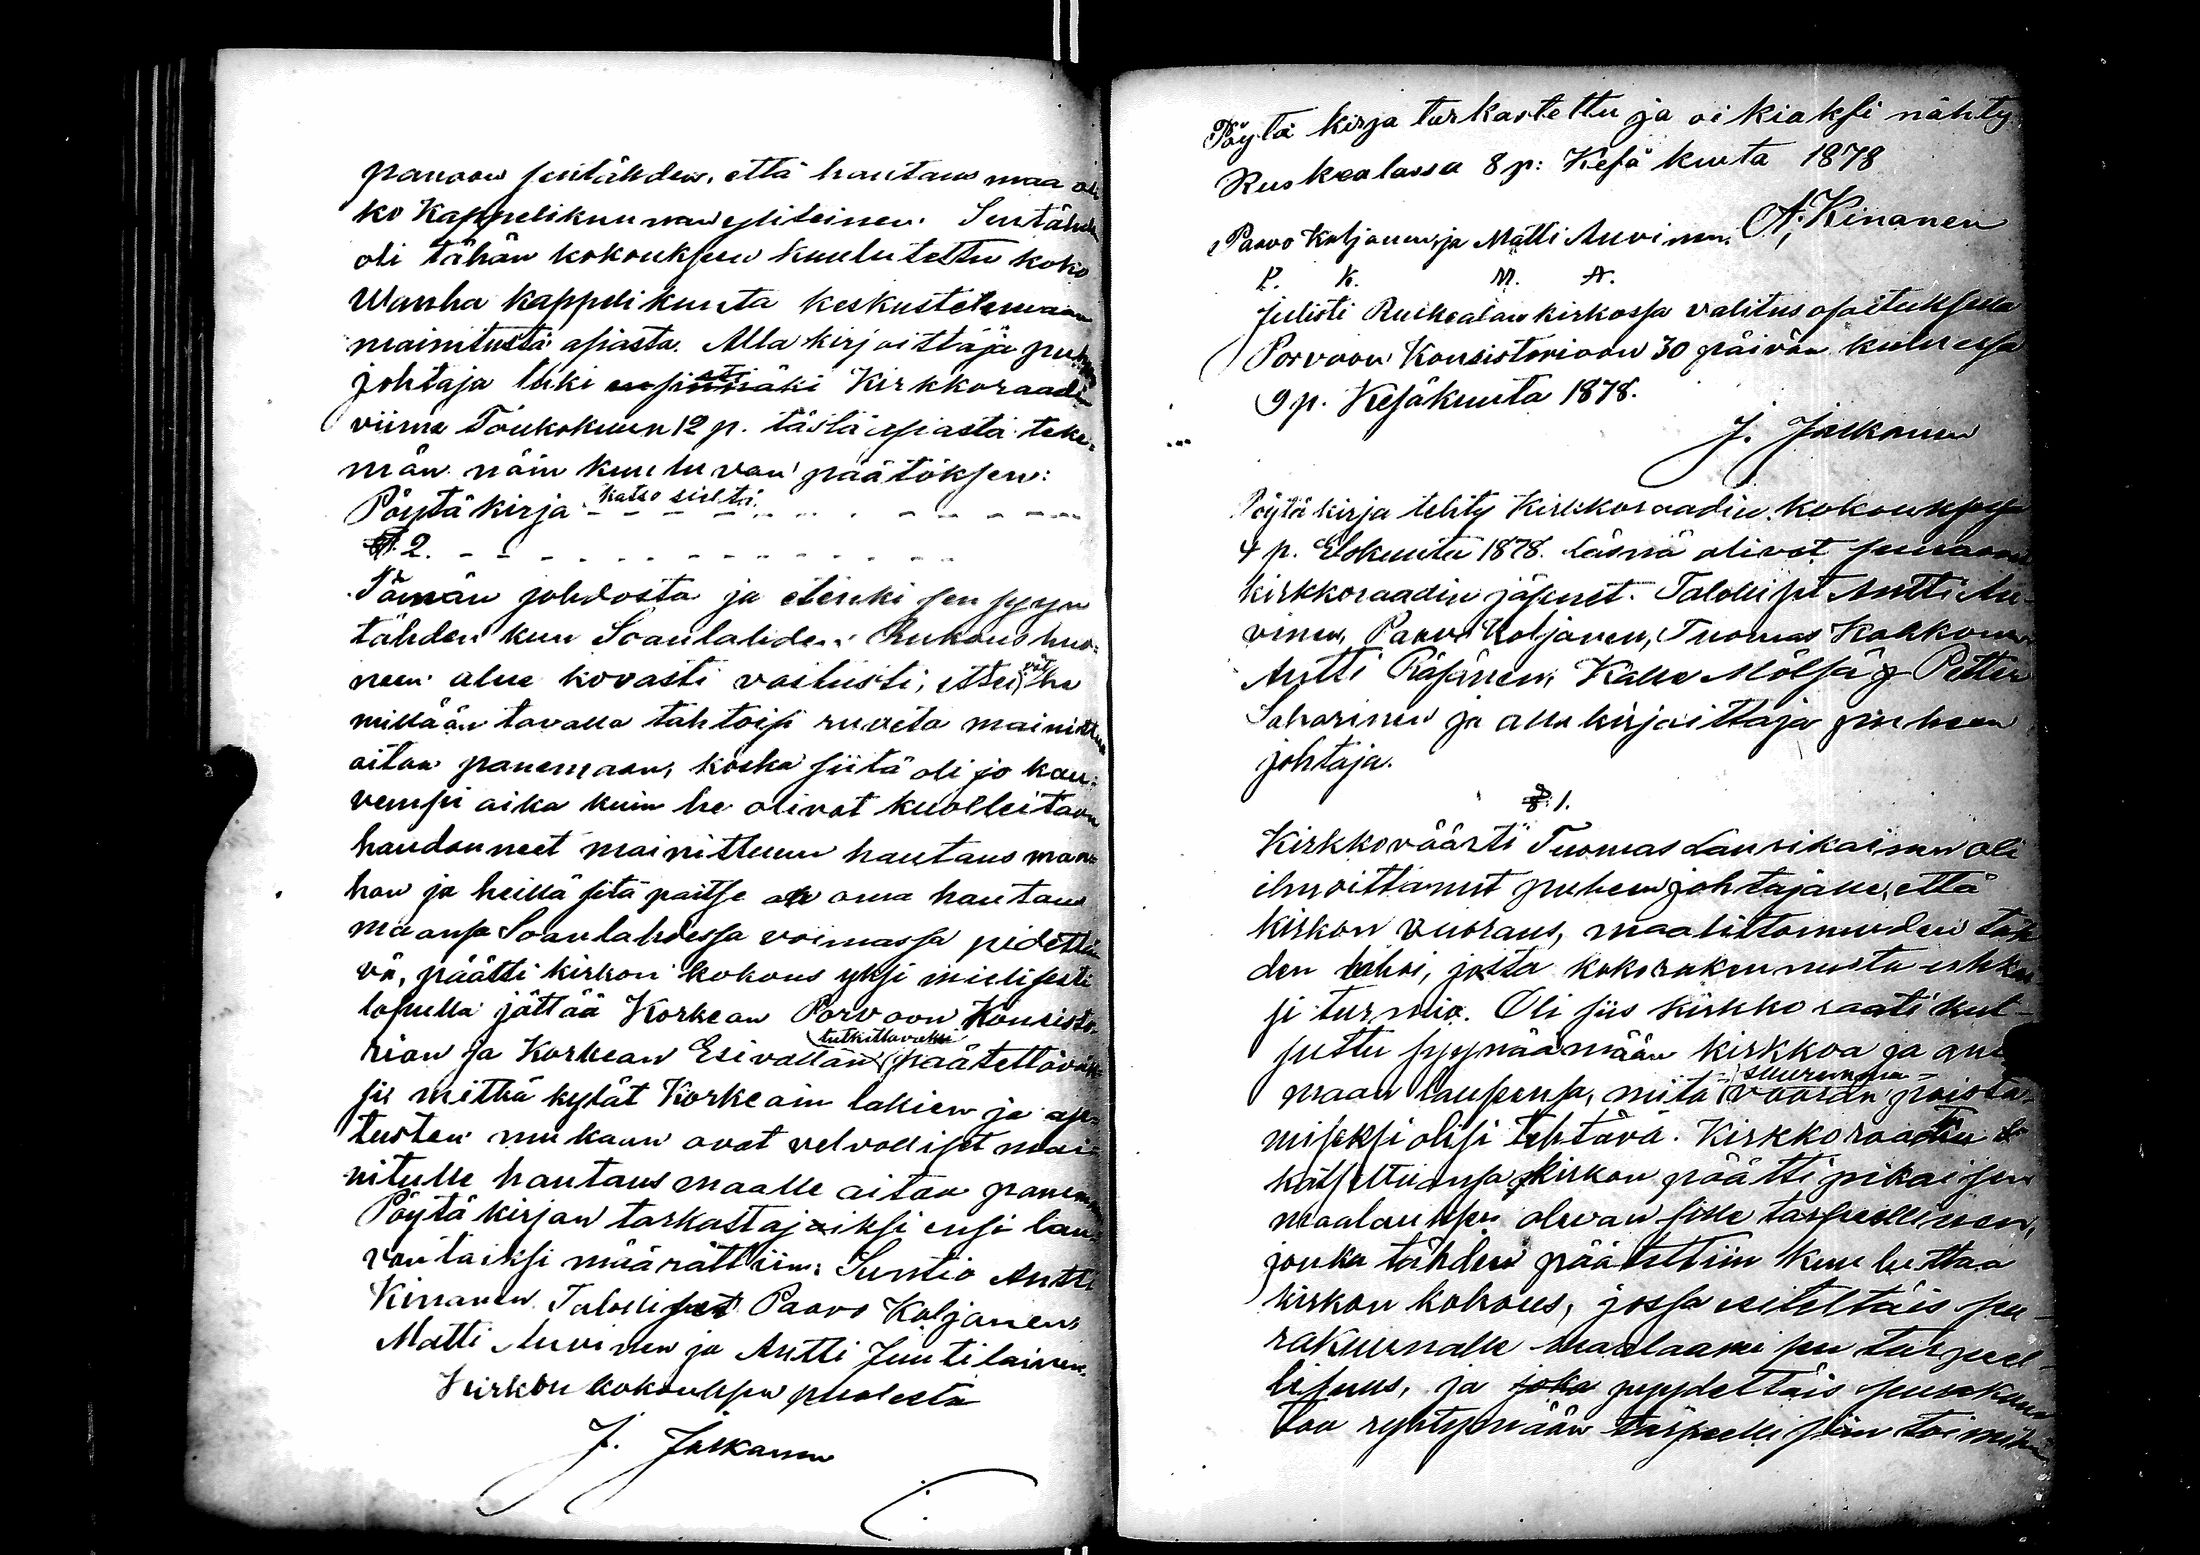 panoon sentähden, että hautaus maa on
ko Kappelikunnan yhteinen. Sentähden
oli tähän kokouksen kuulutettu koko
Wanha kappelikunta keskustelemaan
mainitusta asiasta. Alla kirjoittaja puheen
johtaja luki Kirkkoraadin
viime Toukokuun 12 p. tästä asiasta teke-
män näin kuuluvan päätöksen:
Pöytäkirja katso sieltä
§. 2.
Tämän johdosta ja etenki sen syyn
tähden kun Soanlahden Rukoushuo-
neen alue kovasti vastusti, ettei vät he
millään tavalla tahtoisi ruveta mainittua
aitaa panemaan, koska siitä oli jo kau-
vempi aika kuin he olivat kuolleitaan
haudanneet mainittuun hautaus maa-
han ja heillä sitä paitse on oma hautaus
maansa Soanlahdessa voimassa pidettä-
vä, päätti kirkon kokous yksi mielisesti
lopulla jättää Korkean Porvoon Konsisto-
rion ja Korkean Esivallan tutkittavaksi päätettäväk-
si mitkä kylät Korkeain lakien ja ase-
tusten mukaan ovat velvolliset mai-
nitulle hautausmaalle aitaa panemaan
Pöytäkirjan tarkastajaiksi ensi lau-
vantaiksi määrättiin: Suntio Antti
Kinanen Talolliset Paavo Koljanen,
Matti Auvinen ja Antti Juutilainen.
Kirkon kokouksen puolesta
J. Jalkanen
Pöytä kirja tarkastettu ja oikiaksi nähty
Ruskealassa 8 p: Kesä kuuta 1878
Paavo Koljanen, ja Matti Auvinen. A. Kinanen
P. K. M. A.
Julisti Ruskealan kirkossa valitus osoituksella
Porvoon Konsistorioon 30 päivän kuluessa
9 p. Kesäkuuta 1878.
J. Jalkanen
Pöytäkirja tehty Kirkkoraadin kokouksessa
4 p. Elokuuta 1878. Läsnä olivat seuraavat
kirkkoraadin jäsenet. Talolliset Antti Au-
vinen, Paavo Koljanen, Tuomas Kakkonen
Antti Räsänen, Kalle Mölsä, Petter
Saharinen ja alla kirjoittaja puheen
johtaja.
§. 1.
Kirkkoväärti Tuomas Lauvikainen oli
ilmoittanut puheenjohtajalle, että
kirkon vuoraus, maalittomuuden täh
den lahoi, josta koko rakennusta uhkai
si turmio. Oli siis Kirkko raati kut-
suttu syynäämään kirkkoa ja anta
maan lausensa, mitä suuremman vaaran poista
miseksi olisi tehtävä. Kirkkoraatin
katseltuansa kirkon päätti pikaisen
maalauksen olevan sille tarpeellinen,
jonka tähden päätettiin kuuluttaa
kirkon kokous, jossa esiteltäis seu-
rakunnalle maalaamisen tarpeel-
lisuus, ja pyydettäis seurakun
taa ryhtymään tarpeellisiin toimihin